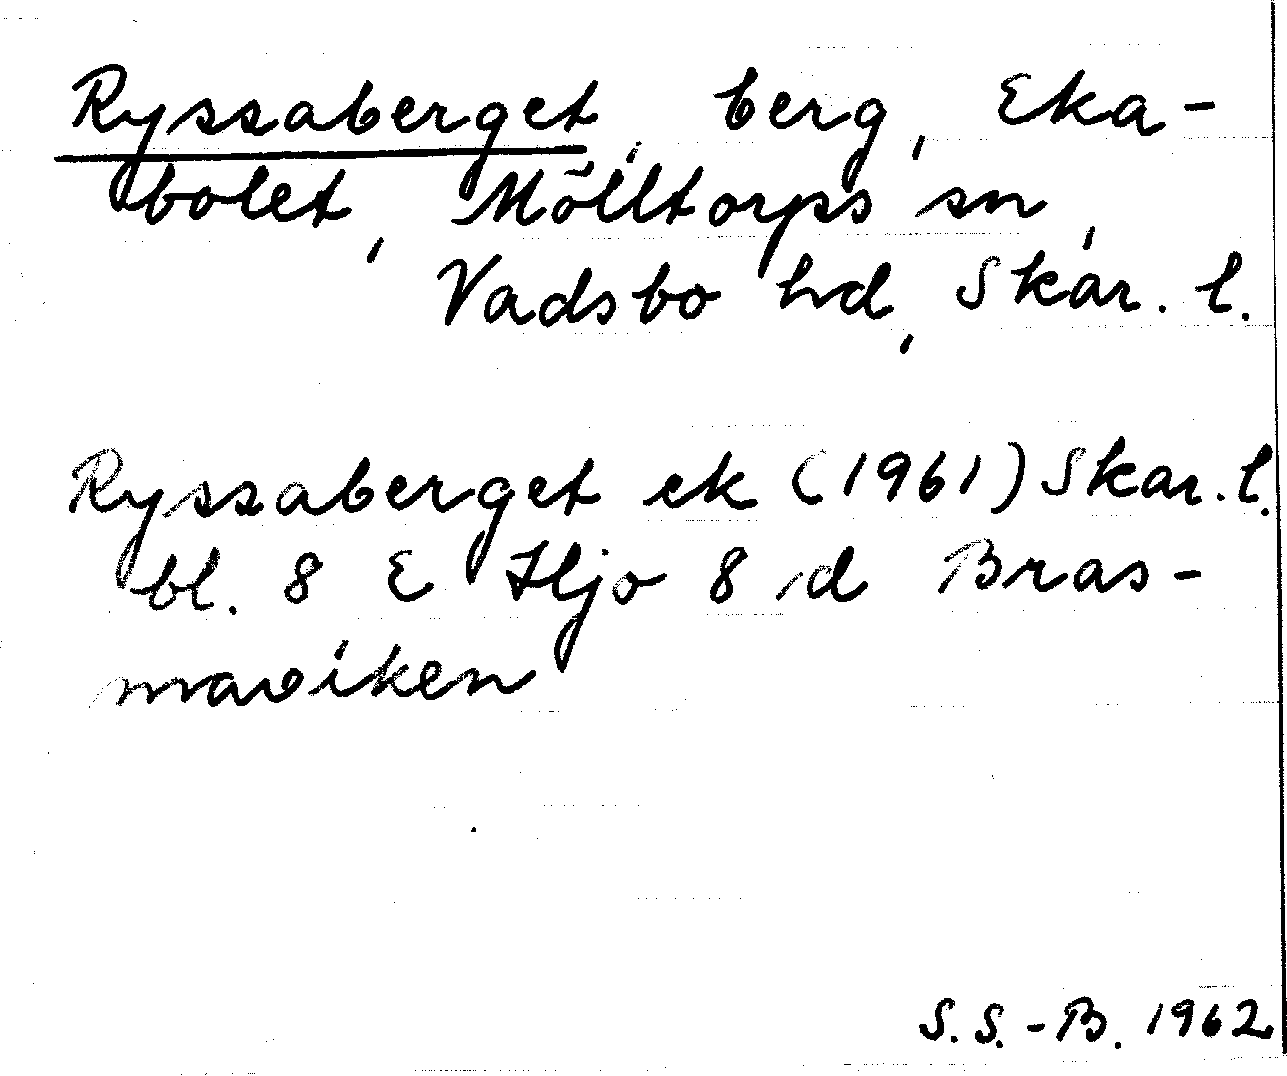 Ryssaberget, berg, Eka-
bolet, Mölltorps sn,
Vadsbo hd, Skar. l.
Ryssaberget ek (1961) Skar. l.
bl. 8 E Hjo 8 d Bras-
maviken
S. S.-B. 1962